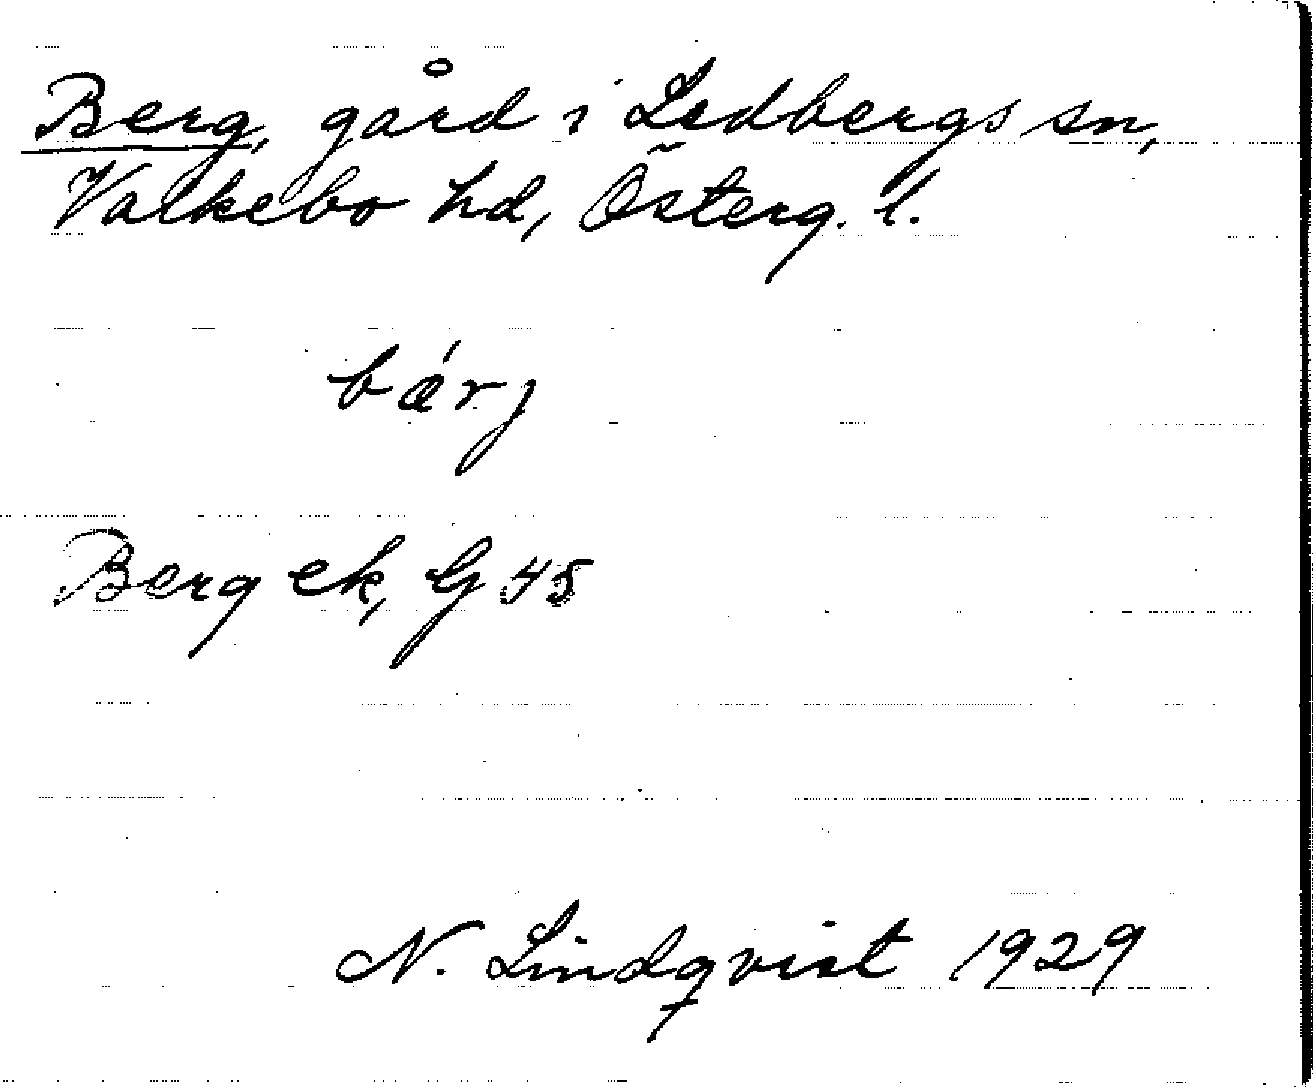 Berg, gård i Ledbergs sn,
Valkebo hd, Österg. l.
bǽrj
Berg ek, G 45
N. Lindqvist 1929